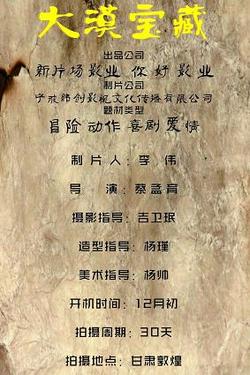 大漠宝藏
出品公司
新片场影业 你好影业
制片公司
宁波纬创影视文化传播有限公司
题材类型
冒险 动作 喜剧 爱情
制片人：李 伟
导 演：蔡孟育
摄影指导：吉卫珉
造型指导：杨瑾
美术指导：杨帅
开机时间：12月初
拍摄周期：30天
拍摄地点：甘肃敦煌